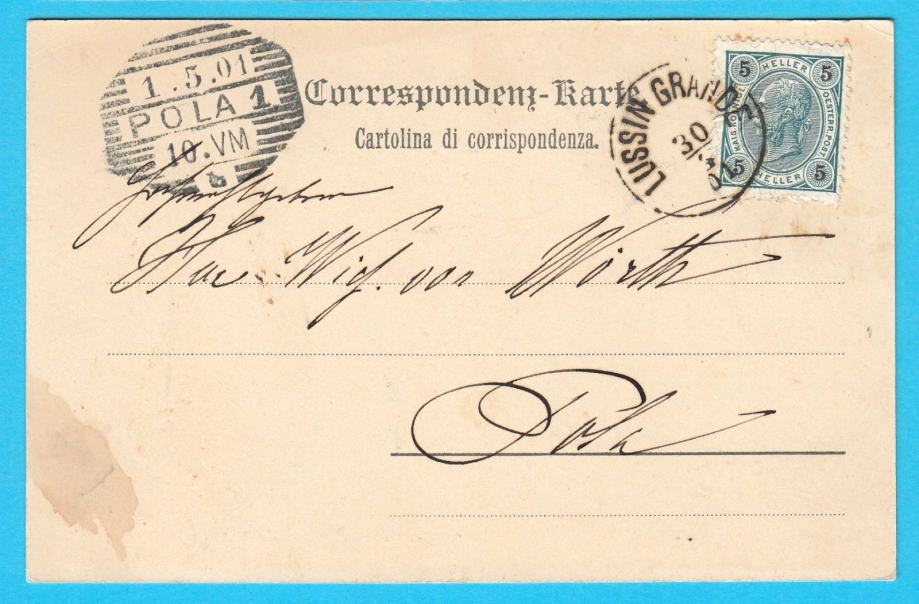 1.5.01
POLA 1
10.VM
b
Correspondenz-Karte
Cartolina di corrispondenza.
LUSSIN GRANDE
30
01
5 HELLER 5
KAIS. KÖNIGL. OESTERR. POST
5 HELLER 5
von Wörth
Pola